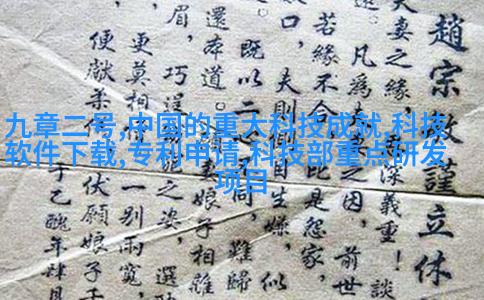 趙宗敏謹立休
夫妻之緣，深義重！談
。凡為夫之因，前世
若緣不合，比是怨家，
口，夫則自生嫌，似
既以二心不同，難歸
還本道。娘子相離
眉，巧逞之姿，選
更莫相一別兩寬，
便獻柔伏願娘子千
于乙醜年肆月
九章二号,中国的重大科技成就,科技
软件下载,专利申请,科技部重点研发
项目